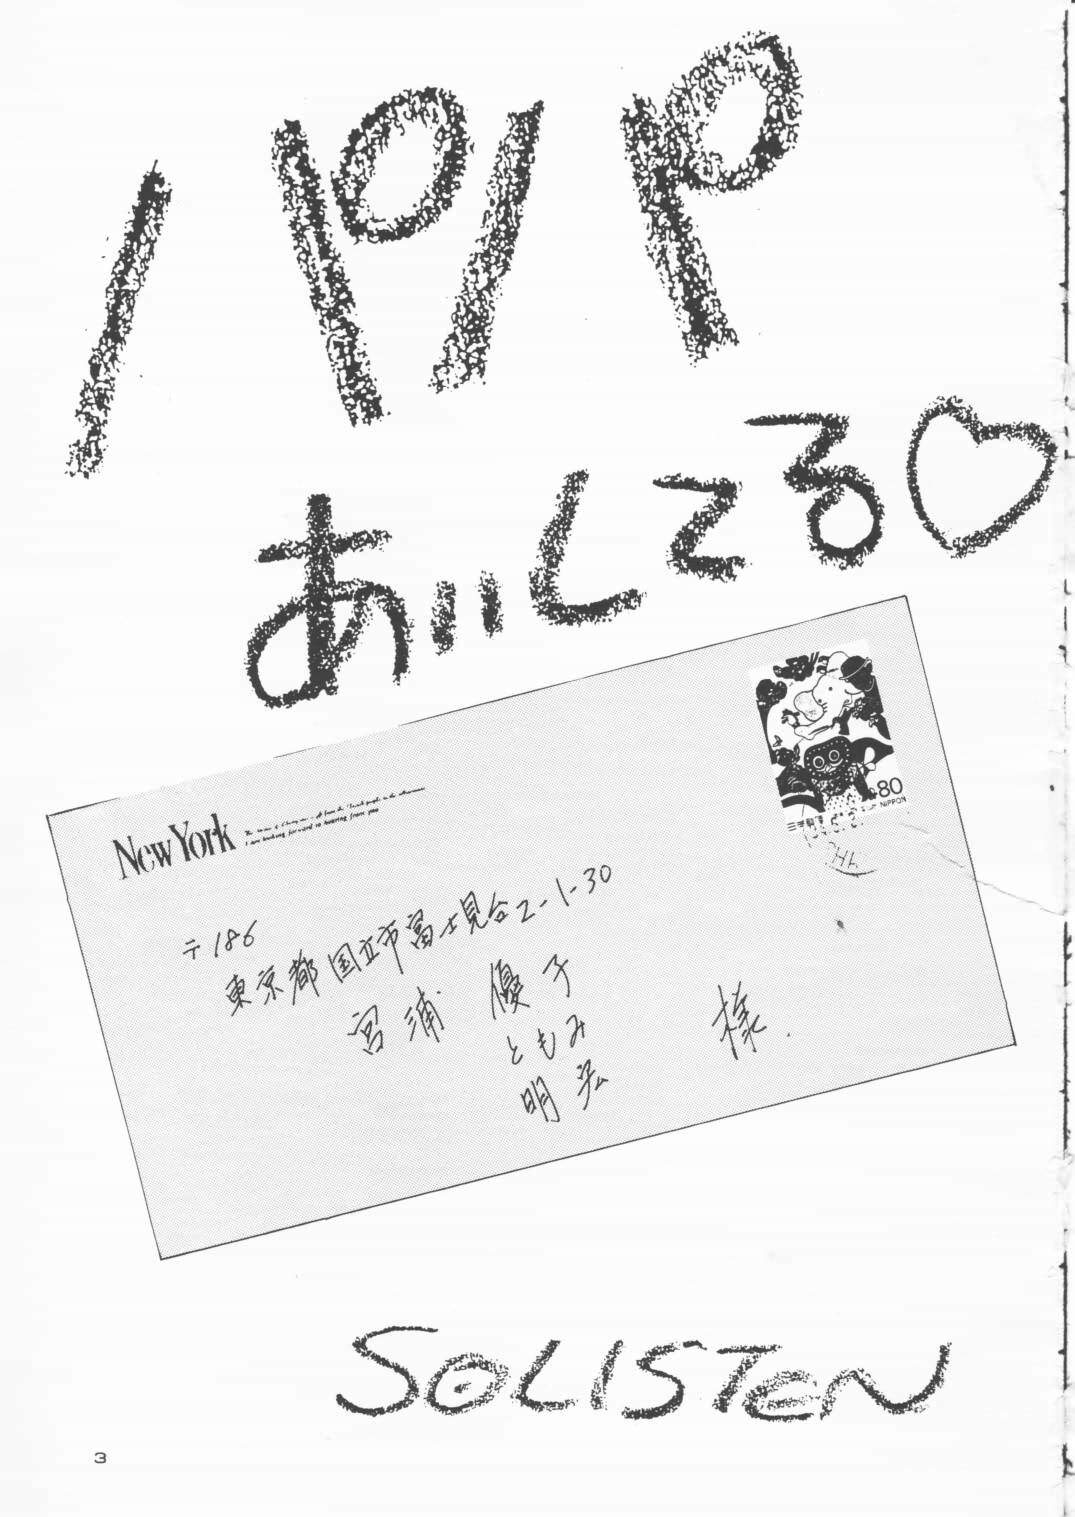 パパ
あいしてる♡
80
NIPPON
New York
I am looking forward to hearing from you
〒186
東京都国立市富士見台2-1-30
宮浦 優子 様
ともみ
明宏
SOLISTEN
3